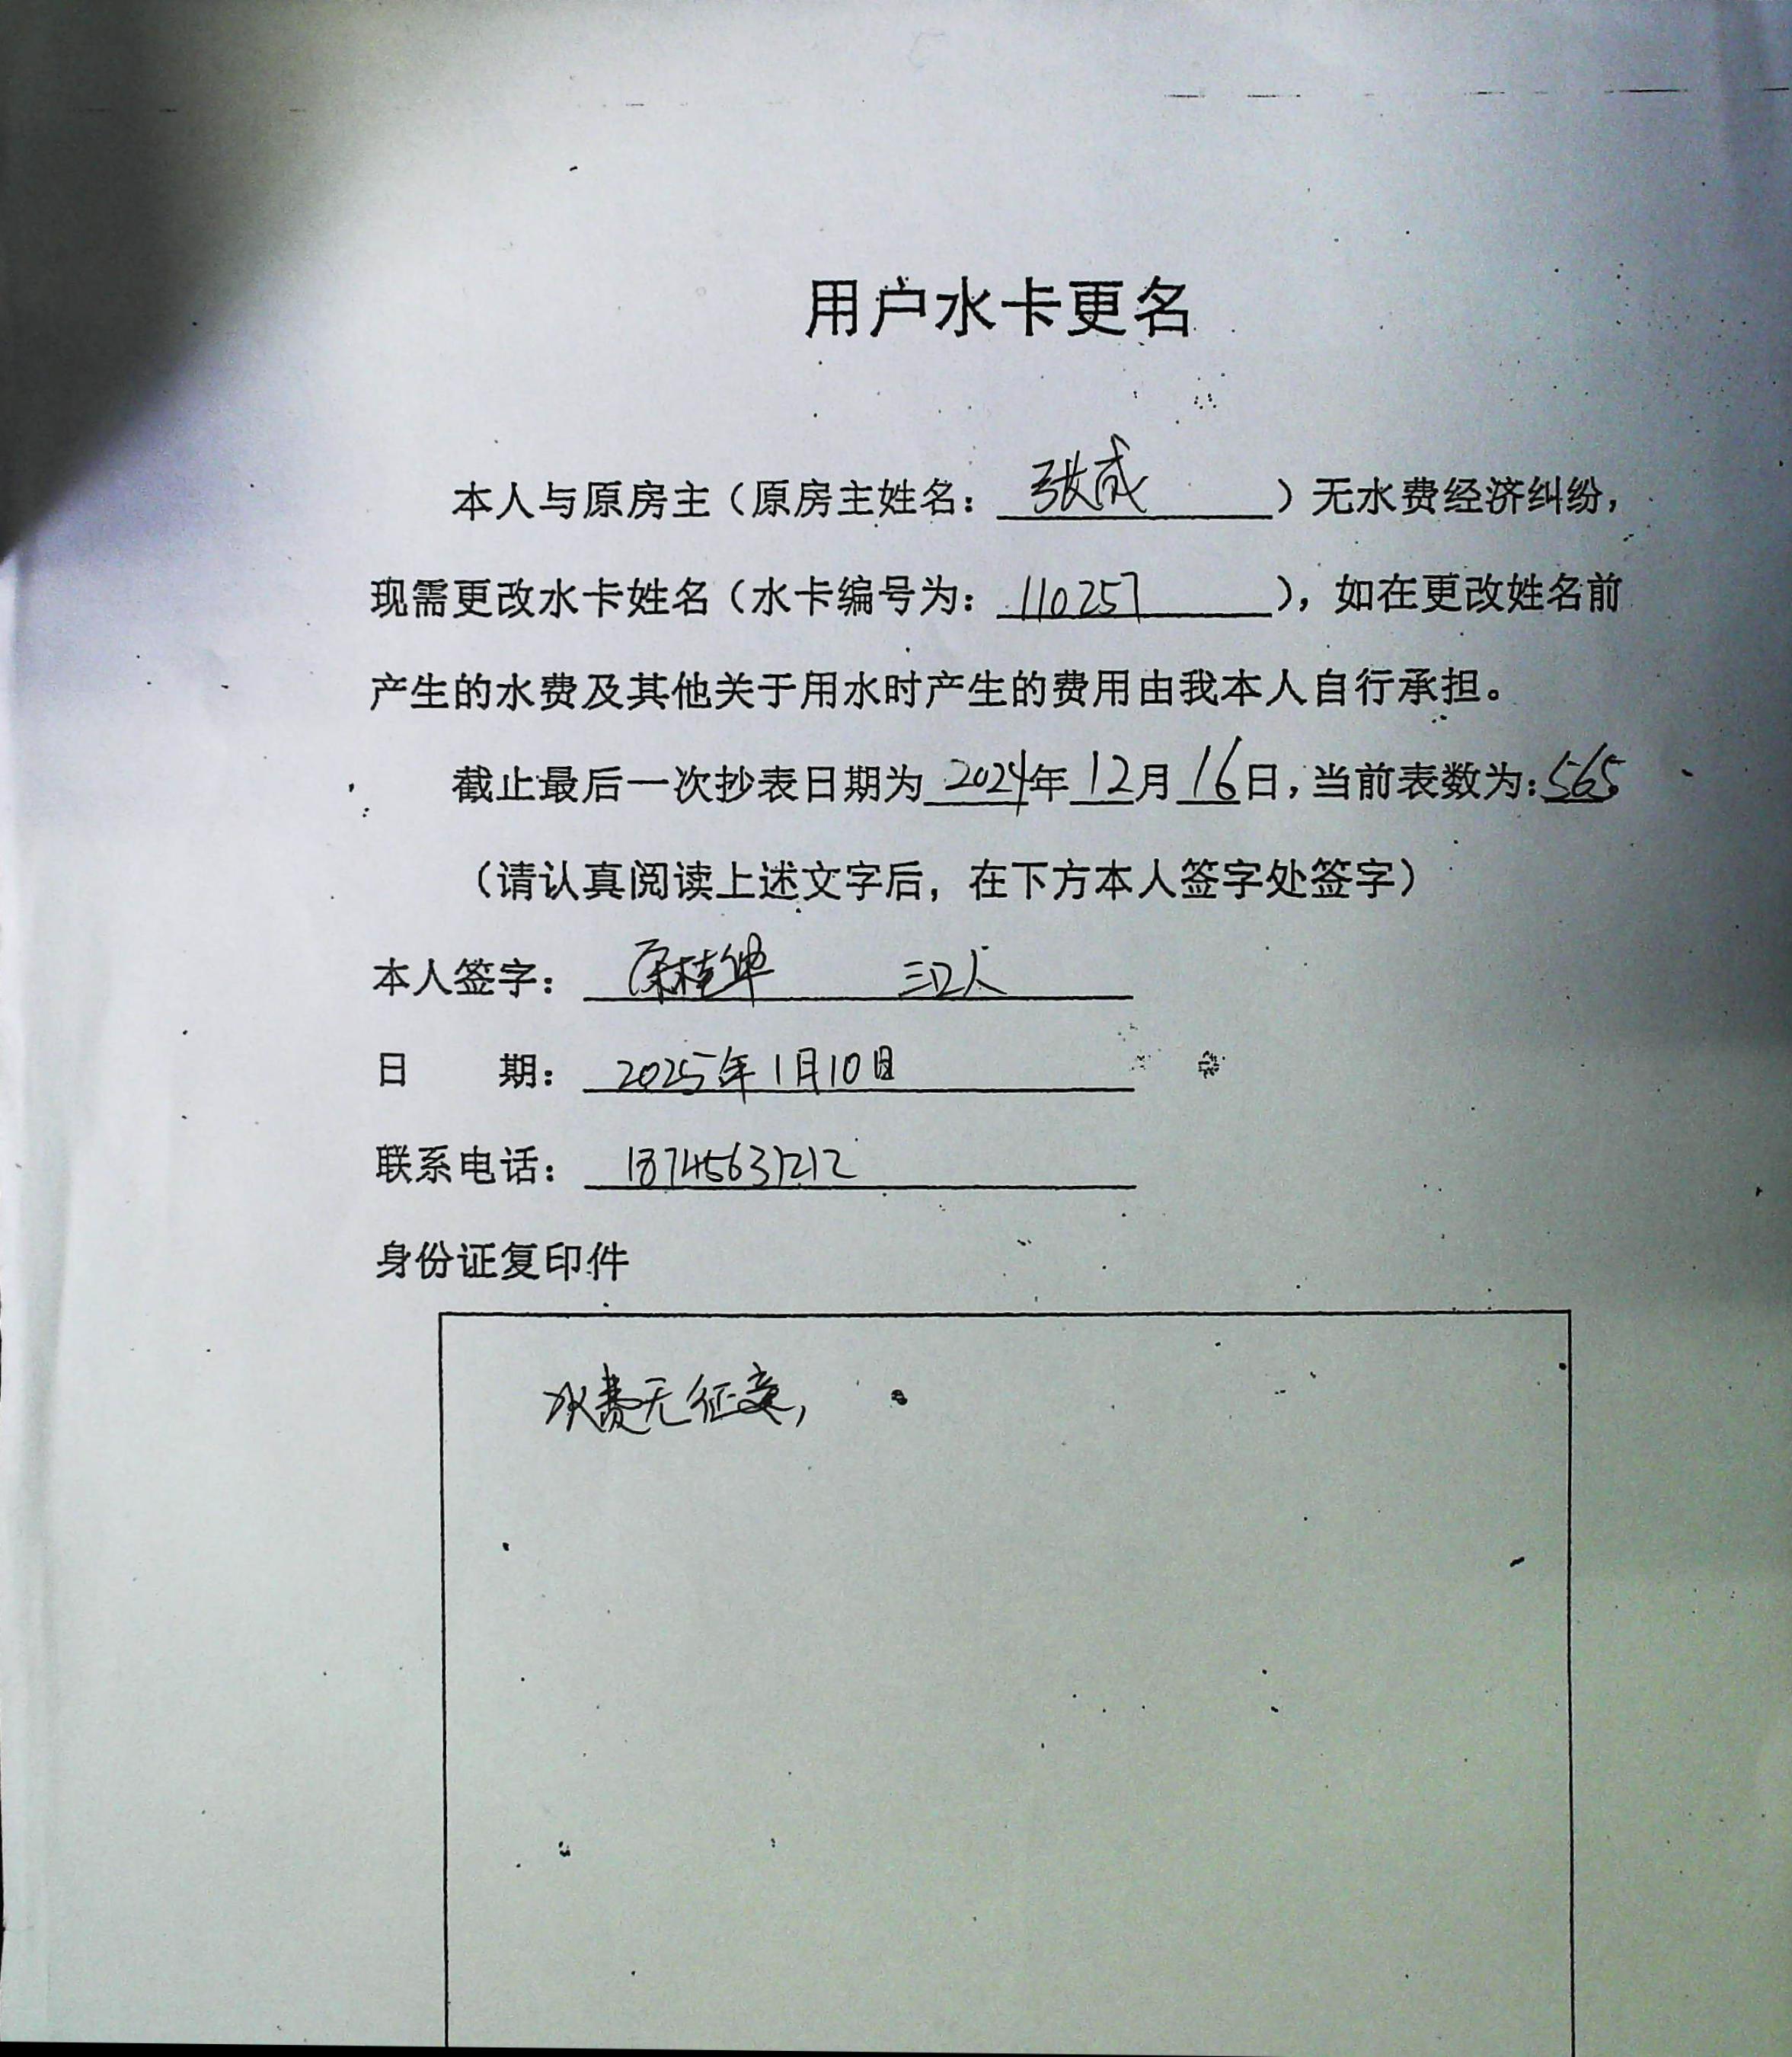 用户水卡更名
本人与原房主（原房主姓名：张成）无水费经济纠纷，
现需更改水卡姓名（水卡编号为：110257），如在更改姓名前
产生的水费及其他关于用水时产生的费用由我本人自行承担。
截止最后一次抄表日期为2024年12月16日，当前表数为：565
（请认真阅读上述文字后，在下方本人签字处签字）
本人签字：桂华 三口人
日期：2025年1月10日
联系电话：18745631212
身份证复印件
水费无征意，